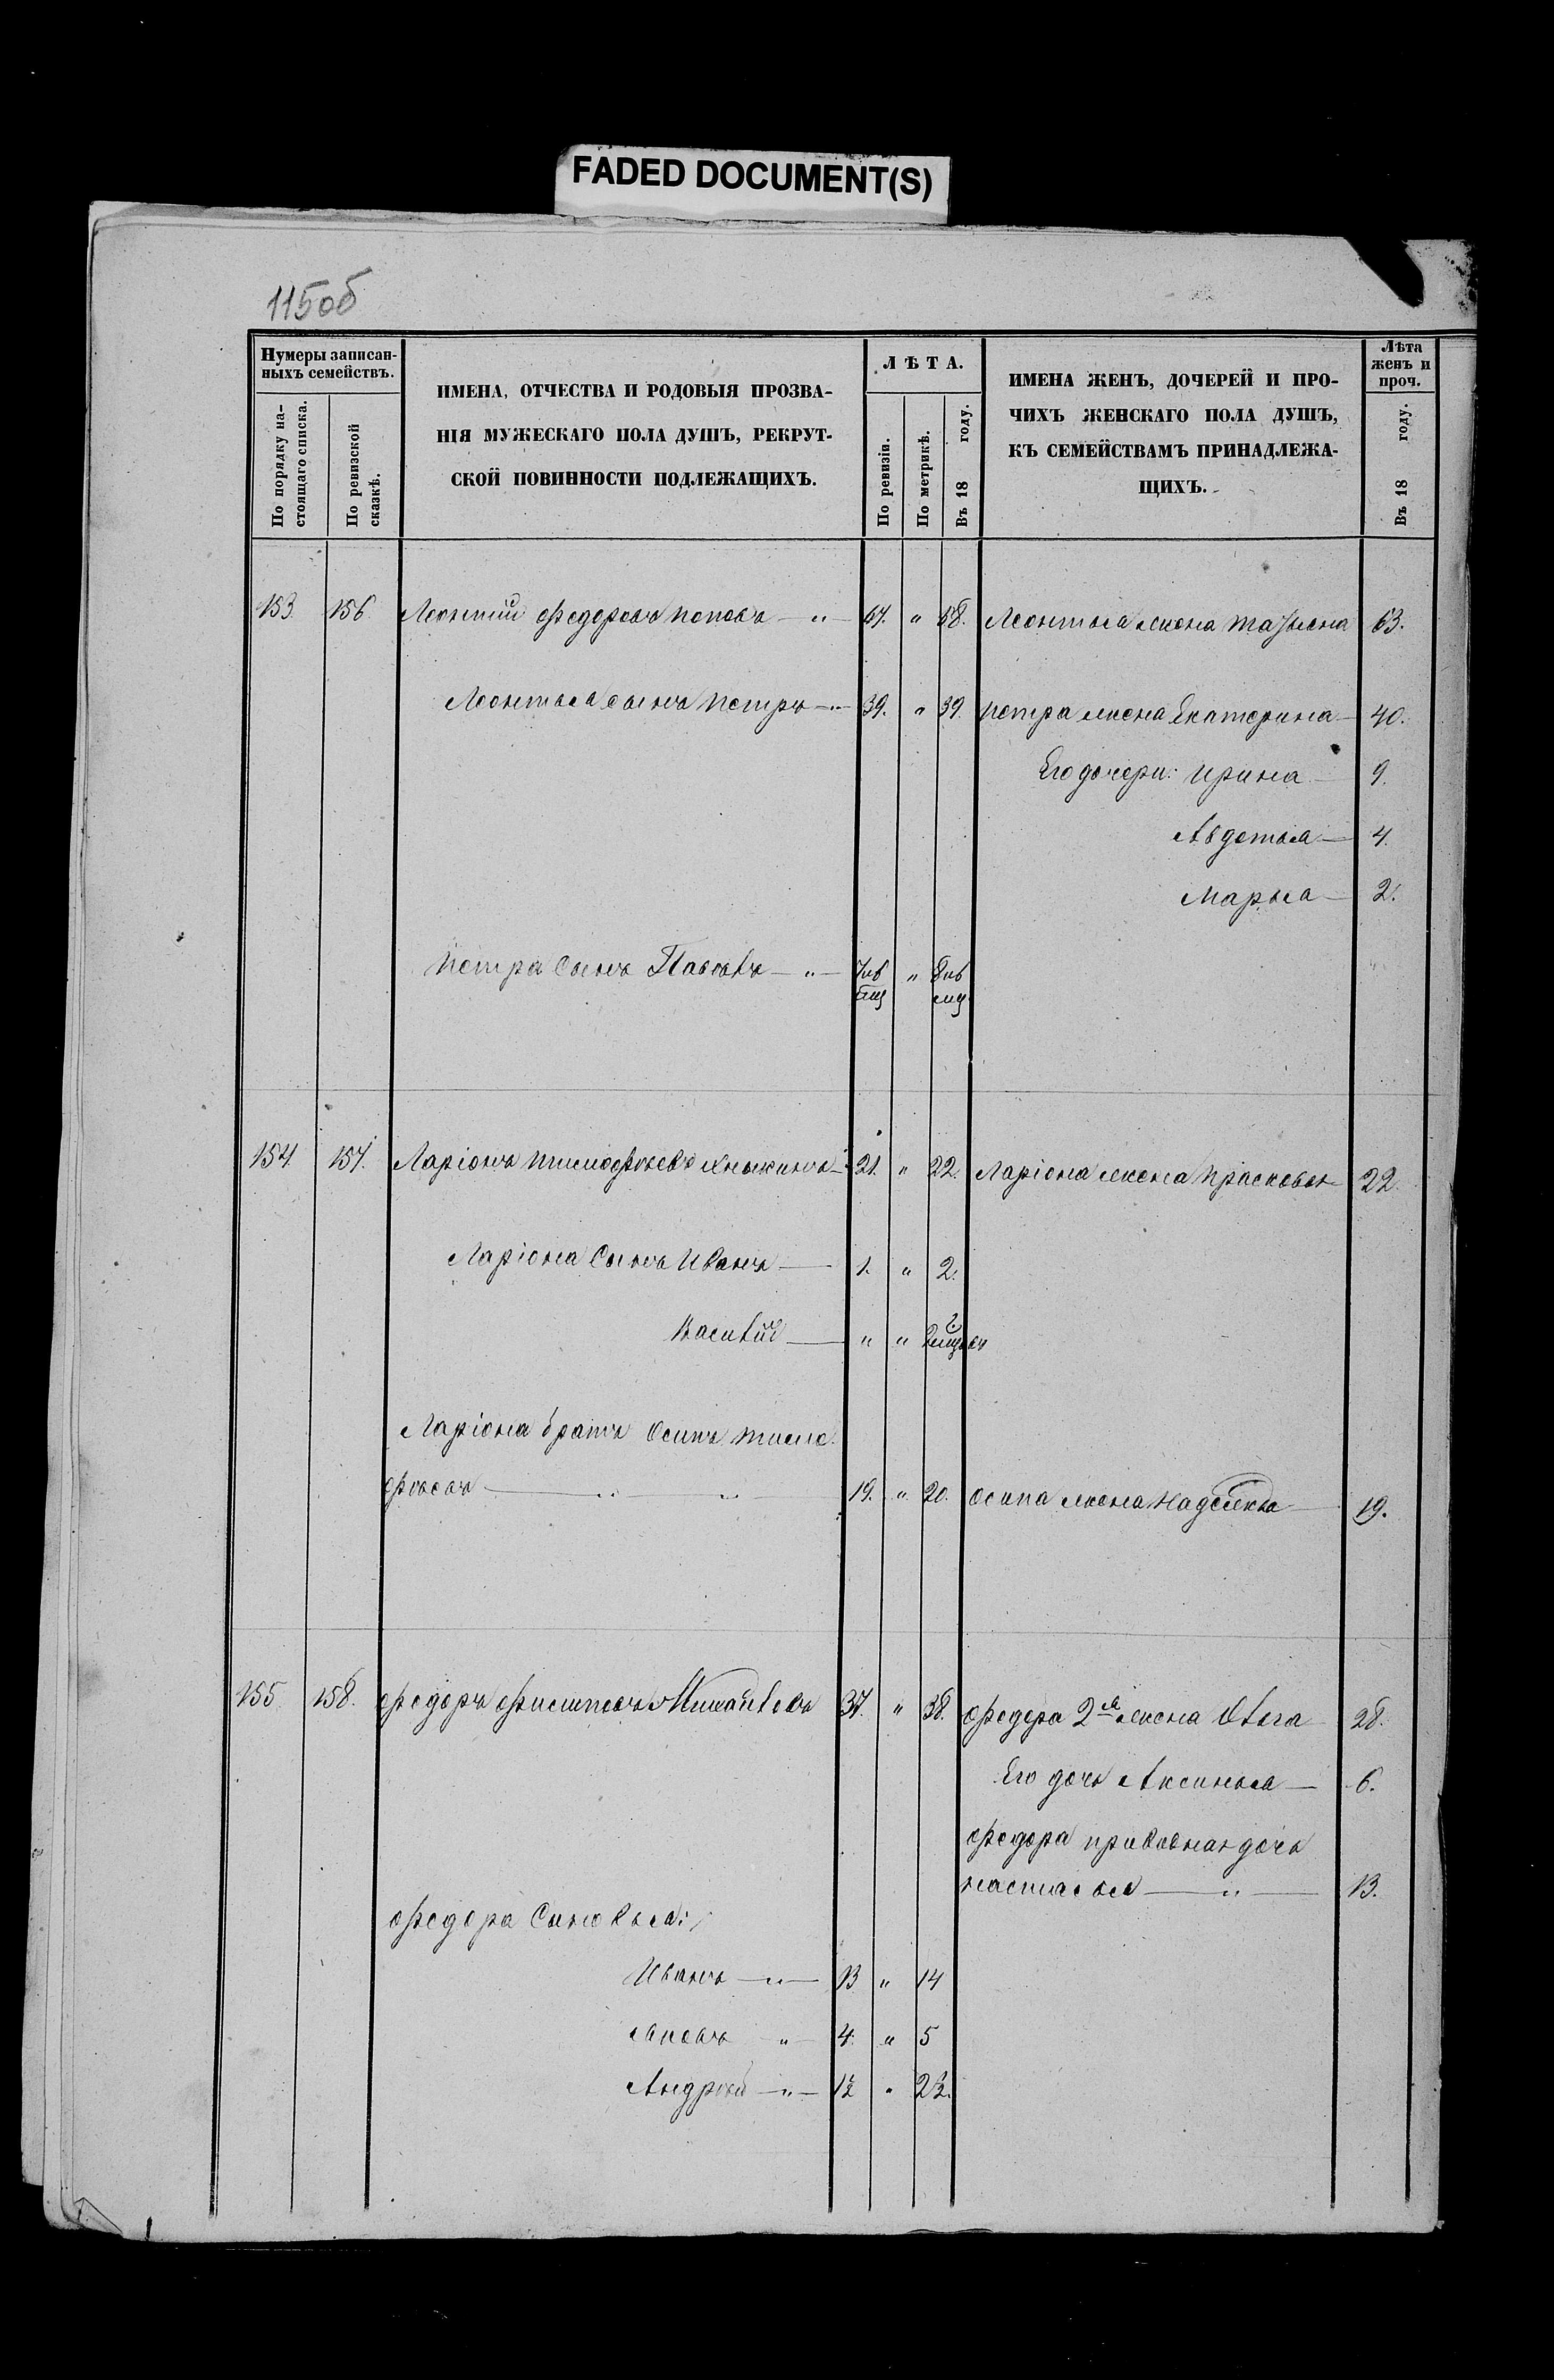 FADED DOCUMENT(S)
115об
Нумеры записан-
ныхъ семействъ.
По порядку на-
стоящаго списка.
По ревизской
сказкѣ.
ИМЕНА, ОТЧЕСТВА И РОДОВЫЯ ПРОЗВА-
НІЯ МУЖЕСКАГО ПОЛА ДУШЪ, РЕКРУТ-
СКОЙ ПОВИННОСТИ ПОДЛЕЖАЩИХЪ.
ЛѢТА.
По ревизіи.
По метрикѣ.
Въ 18 году.
ИМЕНА ЖЕНЪ, ДОЧЕРЕЙ И ПРО-
ЧИХЪ ЖЕНСКАГО ПОЛА ДУШЪ,
КЪ СЕМЕЙСТВАМЪ ПРИНАДЛЕЖА-
ЩИХЪ.
Лѣта
женъ и
проч.
Въ 18 году.
153. 156. Леонтій Федоровъ Поповъ — " — 67. " 68. Леонтья жена Татьяна 63.
Леонтья сынъ Петръ — " — 39. " 39. Петра жена Екатерина — 40.
Его дочери: Ирина — 9.
Авдотья — 4.
Марья — 2.
Петра сынъ Павелъ — " — "
154. 157. Ларіонъ Тимофѣевъ 21. " 22. Ларіона жена Прасковья 22.
Ларіона сынъ Иванъ — 1. " 2.
Василій — " "
Ларіона братъ Осипъ Тимо
фѣевъ — " — " — 19. " 20. Осипа жена Надежда — 19.
155. 158. Федоръ Филиповъ Михайловъ 37. " 38. Федора 2я жена Ольга 28.
Его дочь Аксинья — 6.
Федора приводная дочь
Настасья — " — 13.
Федора сыновья:
Иванъ — " — 13 " 14
Яковъ " — 4. " 5
Андрей — " — 1½ " 2½.